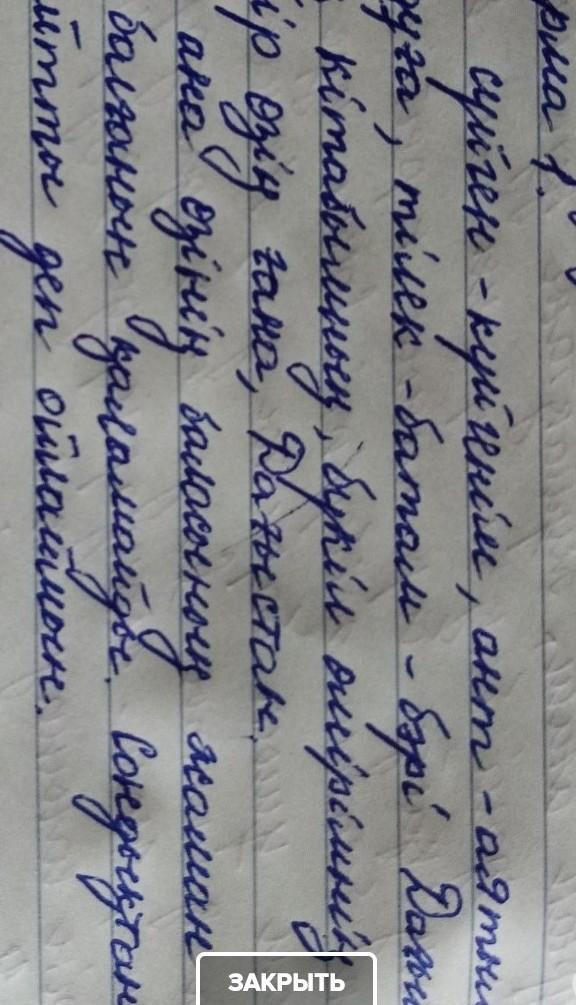 рма 1.
сүйген - күйгенім, ант - аятың
руға, тілек - батам - бәрі Дағы
кітабымның, бүкіл өмірімнің
ір өзің ғана, Дағыстан.
ана өзінің баласының жаман
болғанын қаламайды. Сондықтан
йтты деп ойлаймын.
ЗАКРЫТЬ